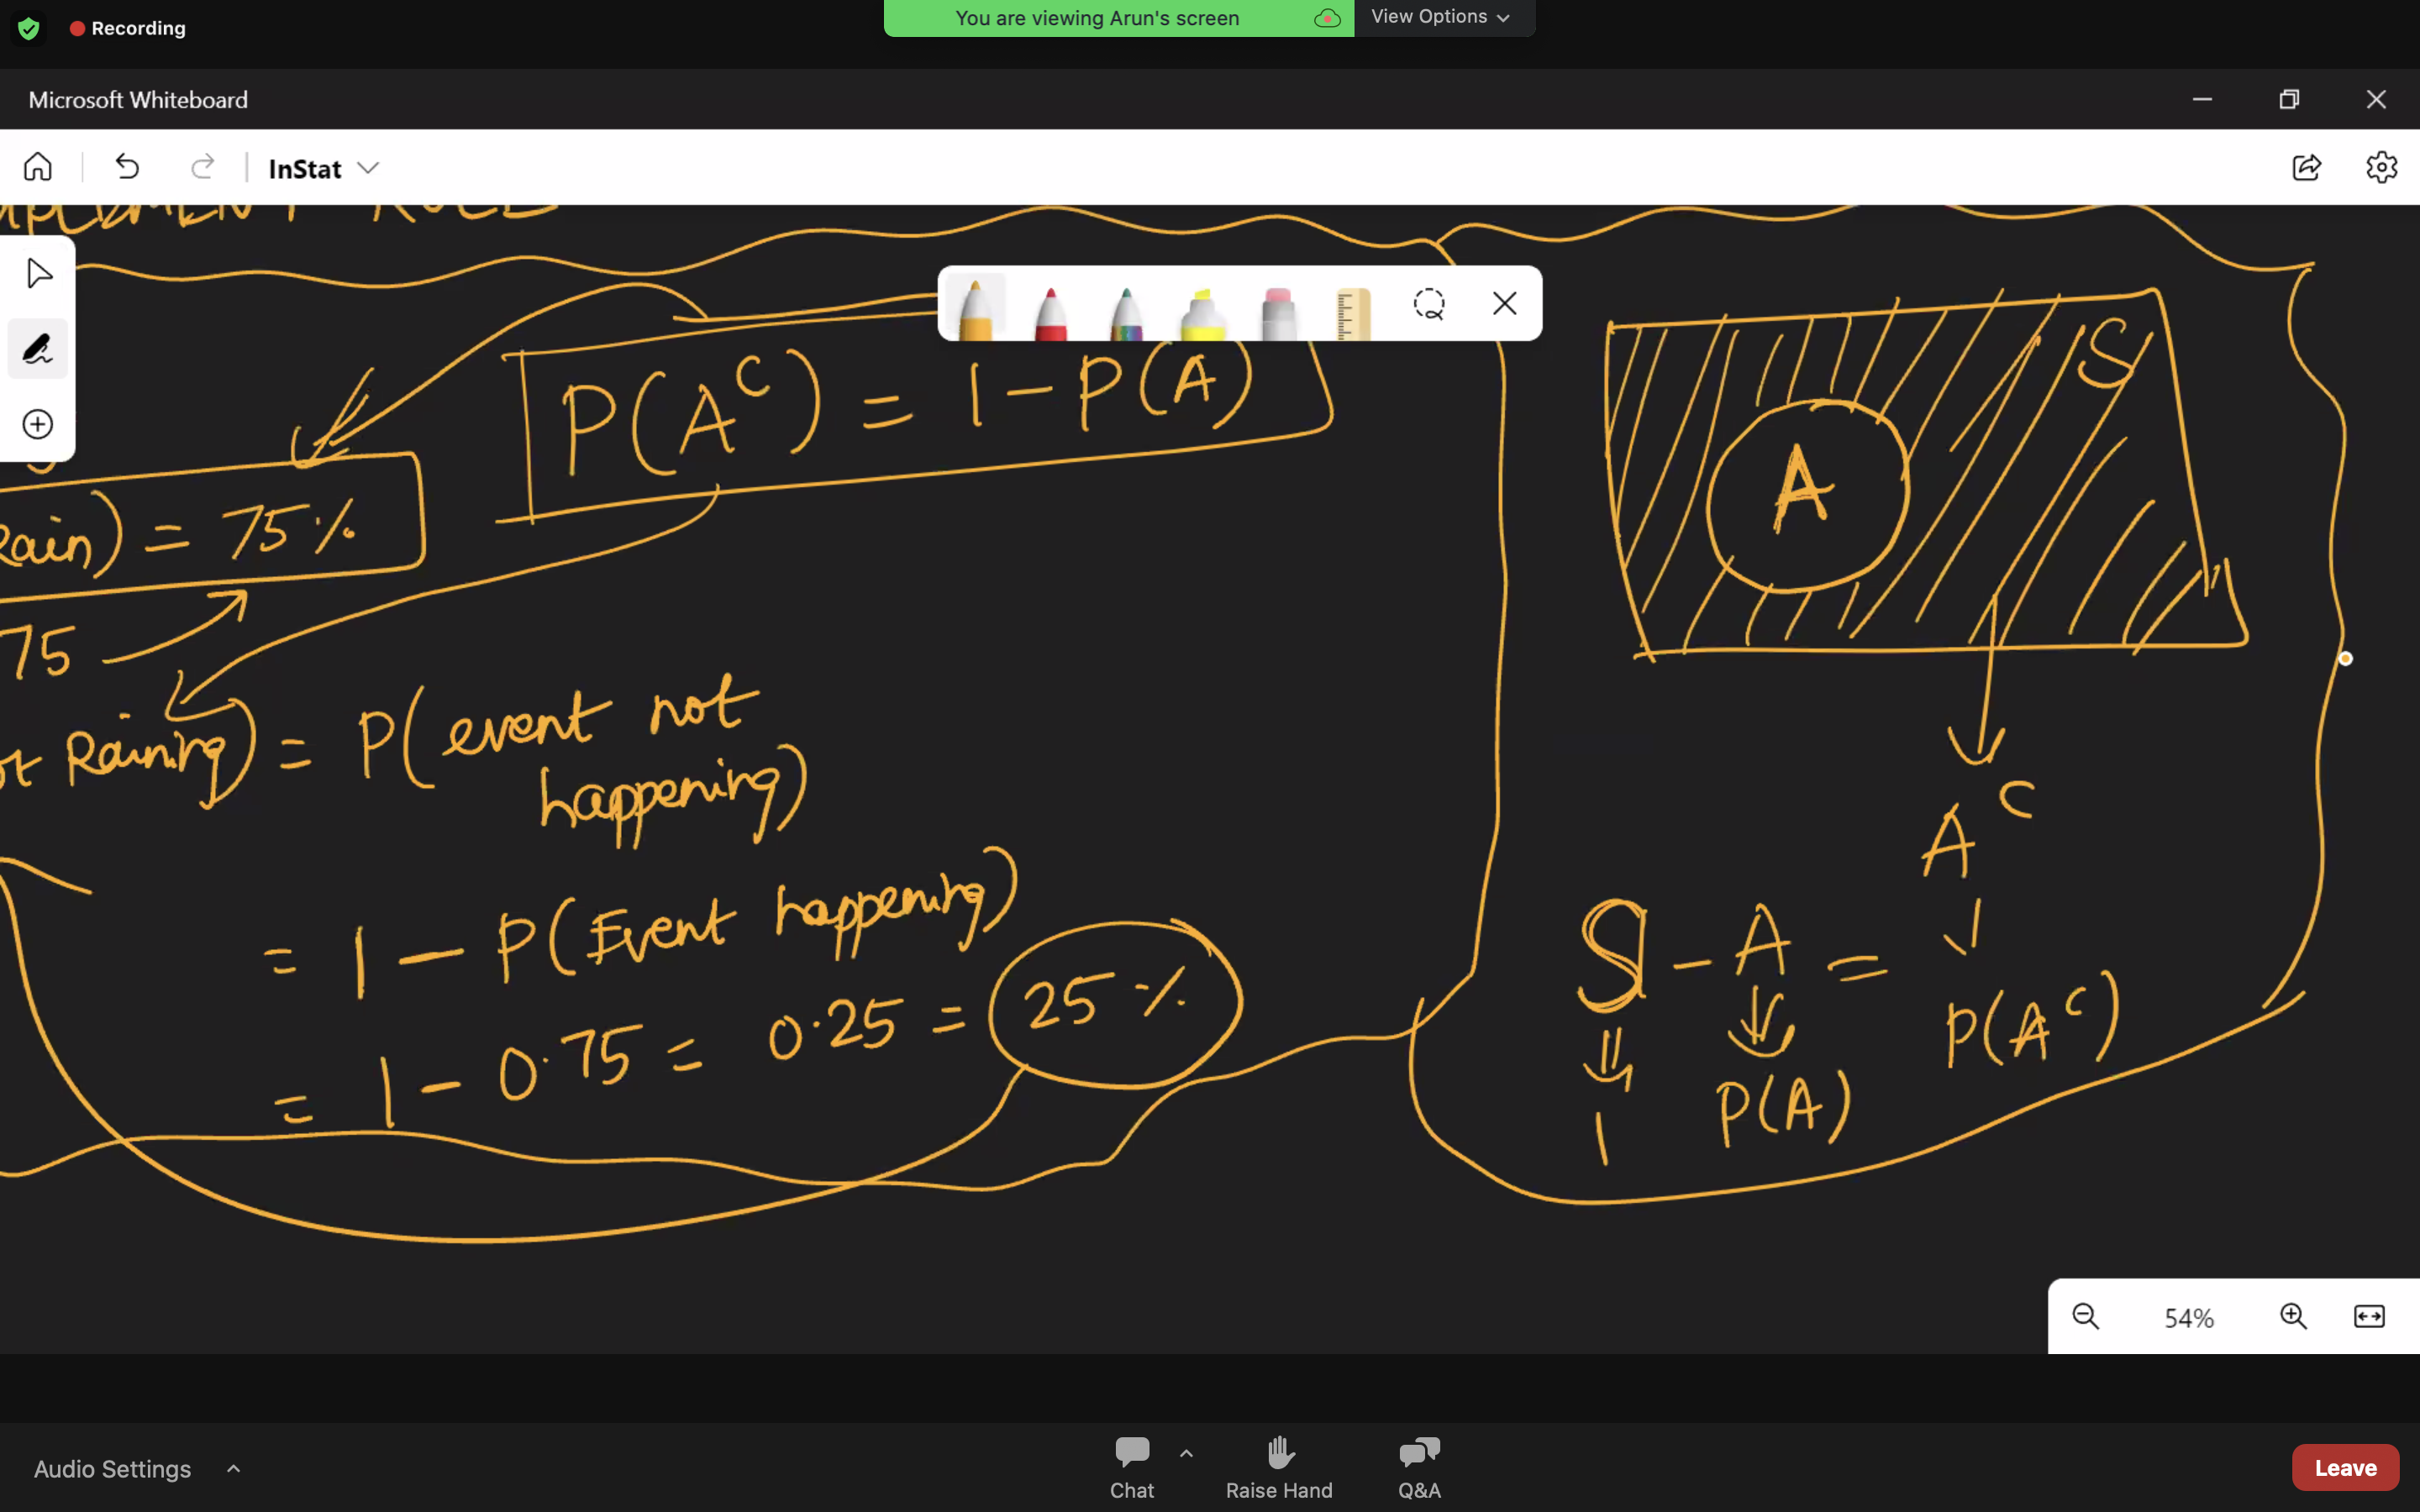 Recording
You are viewing Arun's screen
View Options
Microsoft Whiteboard
InStat
P(A^C) = 1 - P(A)
Rain) = 75%
75
Raining) = P(event not
happening)
= 1 - P(Event happening)
= 1 - 0.75 = 0.25 = 25%
S
A
A^C
S - A = P(A^C)
1 P(A)
54%
Audio Settings
Chat
Raise Hand
Q&A
Leave